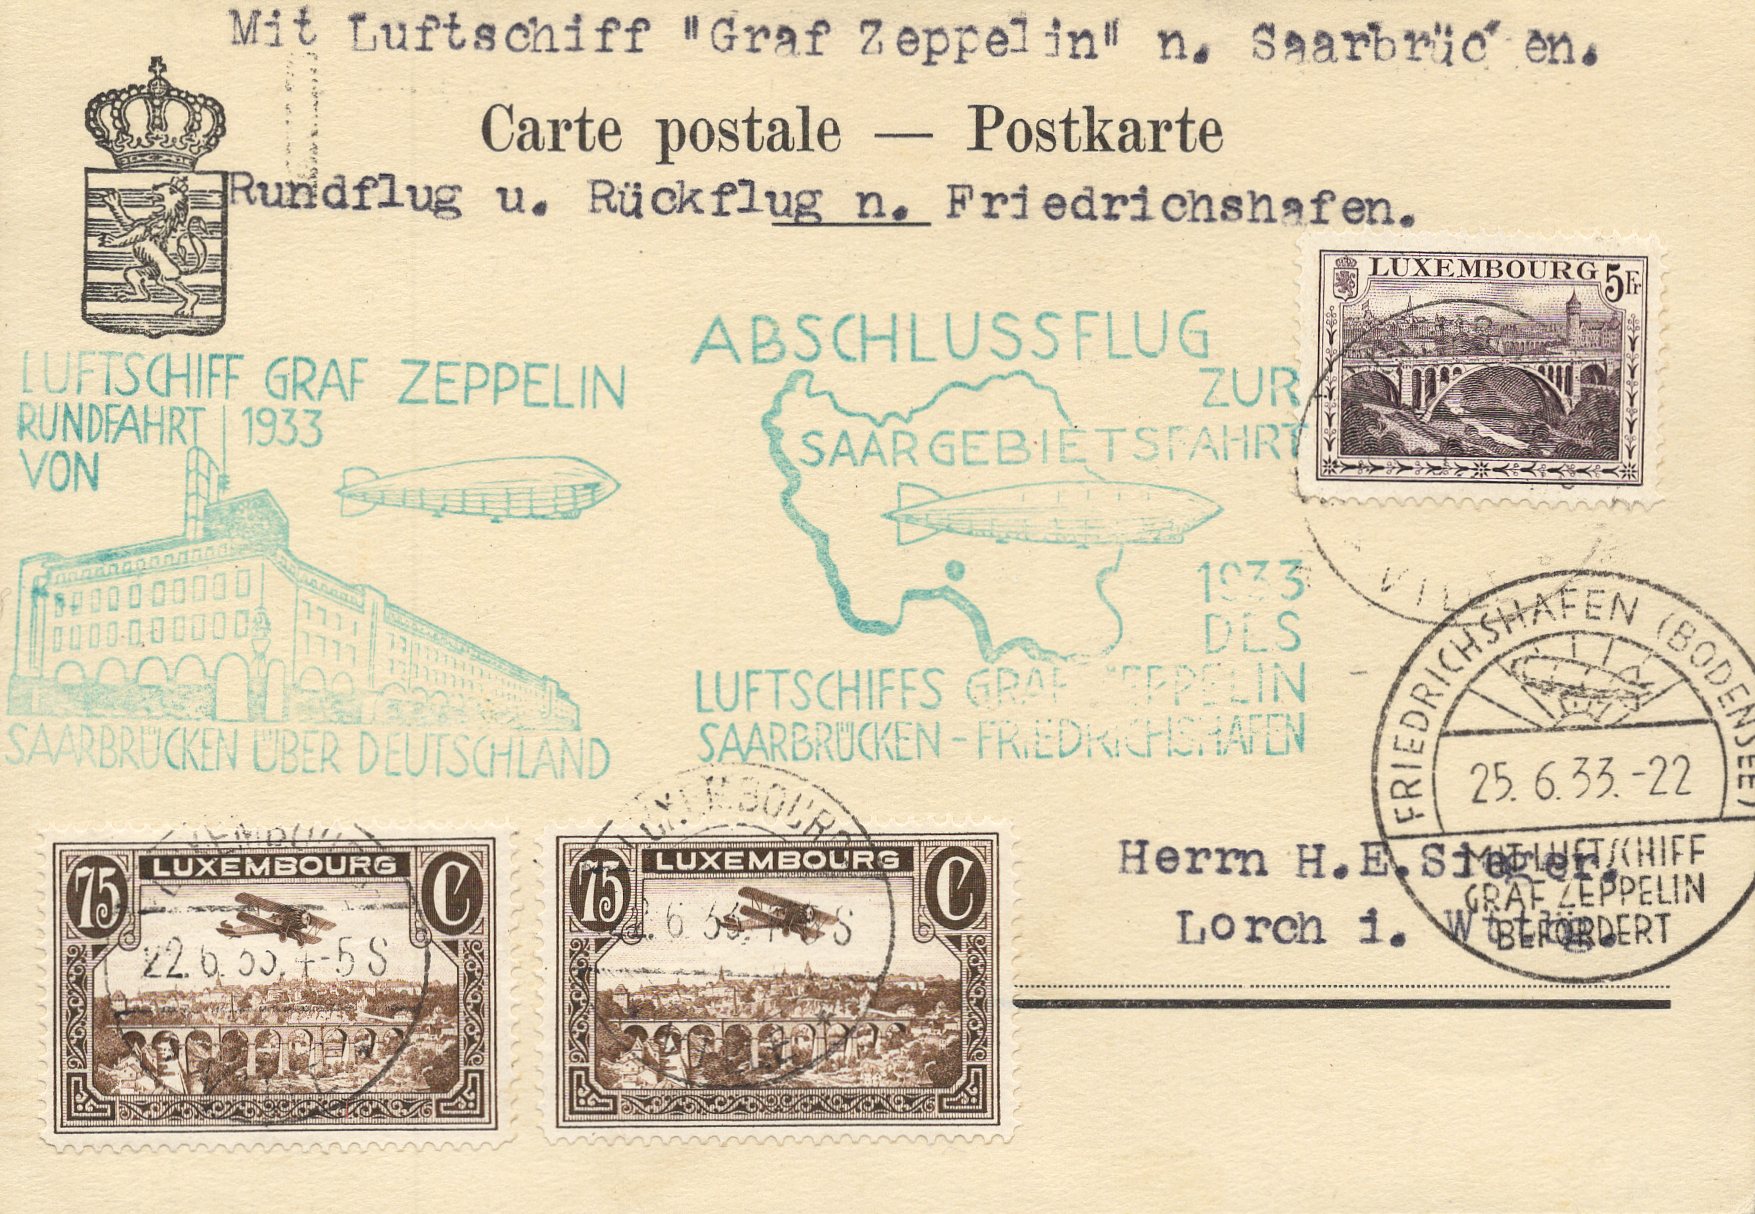 Mit Luftschiff "Graf Zeppelin" n. Saarbrücken.
Carte postale — Postkarte
Rundflug u. Rückflug n. Friedrichshafen.
LUXEMBOURG 5Fr
LUFTSCHIFF GRAF ZEPPELIN
RUNDFAHRT 1933
VON
SAARBRÜCKEN ÜBER DEUTSCHLAND
ABSCHLUSSFLUG
ZUR
SAARGEBIETSFAHRT
1933
DES
LUFTSCHIFFS GRAF ZEPPELIN
SAARBRÜCKEN - FRIEDRICHSHAFEN
FRIEDRICHSHAFEN (BODENSEE)
25.6.33.-22
MIT LUFTSCHIFF
GRAF ZEPPELIN
BEFÖRDERT
Herrn H.E.Sieger.
Lorch i. Wttbg.
75 LUXEMBOURG C
LUXEMBOURG
22.6.33.4-5S
75 LUXEMBOURG C
LUXEMBOURG